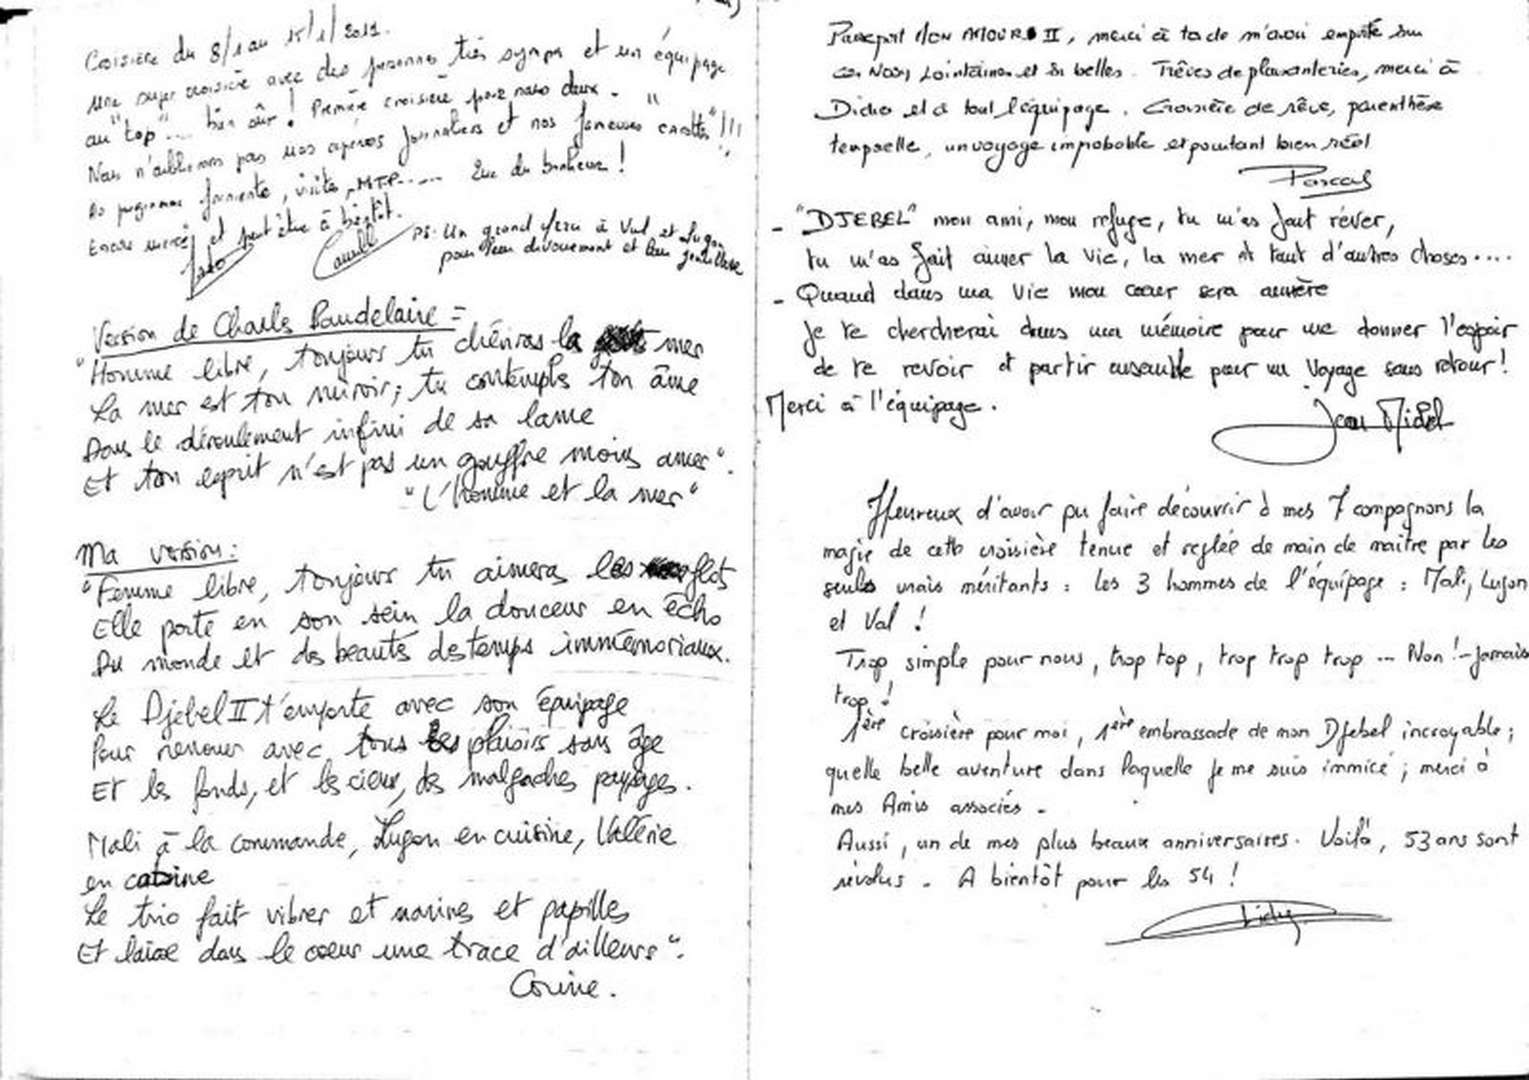 Croisière du 8/1 au 15/1/2011.
Une super croisière avec des personnes très sympa et un équipage
au "top"... bien sûr ! Première croisière pour nous deux.
Nous n'oublierons pas nos apéros journaliers et nos fameuses "carottes" !!!
Au programme farniente, visites, MTP...... Que du bonheur !
Encore merci et peut être à bientôt.
Camille
PS: Un grand merci à Val et Lugon
pour leur dévouement et leur gentillesse
Version de Charles Baudelaire =
"Homme libre, toujours tu chériras la mer
La mer est ton miroir; tu contemples ton âme
Dans le déroulement infini de sa lame
Et ton esprit n'est pas un gouffre moins amer".
"L'homme et la mer"
Ma version:
"Femme libre, toujours tu aimeras les flots
Elle porte en son sein la douceur en écho
Du monde et des beautés des temps immémoriaux.
Le Djebel II t'emporte avec son équipage
Pour renouer avec tous les plaisirs sans âge
Et les fonds, et les cieux, des malgaches paysages.
Mali à la commande, Lugon en cuisine, Valérie
en cabine
Le trio fait vibrer et narines et papilles
Et laisse dans le coeur une trace d'ailleurs".
Corine.
MON AMOUR II, merci à toi de m'avoir emporté sur
ces Nosy Lointaines et si belles. Trêves de plaisanteries, merci à
Didier et à tout l'équipage. Croisière de rêve, parenthèse
temporelle, un voyage improbable et pourtant bien réel
Pascal
- "DJEBEL" mon ami, mon refuge, tu m'as fait rêver,
tu m'as fait aimer la vie, la mer et tant d'autres choses....
- Quand dans ma vie mon coeur sera amère
Je te chercherai dans ma mémoire pour me donner l'espoir
de te revoir et partir ensemble pour un voyage sans retour !
Merci à l'équipage.
Jean Michel
Heureux d'avoir pu faire découvrir à mes 7 compagnons la
magie de cette croisière tenue et reglée de main de maitre par les
seuls vrais méritants : les 3 hommes de l'équipage : Mali, Lugon
et Val !
Trop simple pour nous, trop top, trop trop trop ... Non !- Jamais
trop !
1ère croisière pour moi, 1ère embrassade de mon Djebel incroyable ;
quelle belle aventure dans laquelle je me suis immicé ; merci à
mes Amis associés -
Aussi, un de mes plus beaux anniversaires. Voilà, 53 ans sont
révolus - A bientôt pour les 54 !